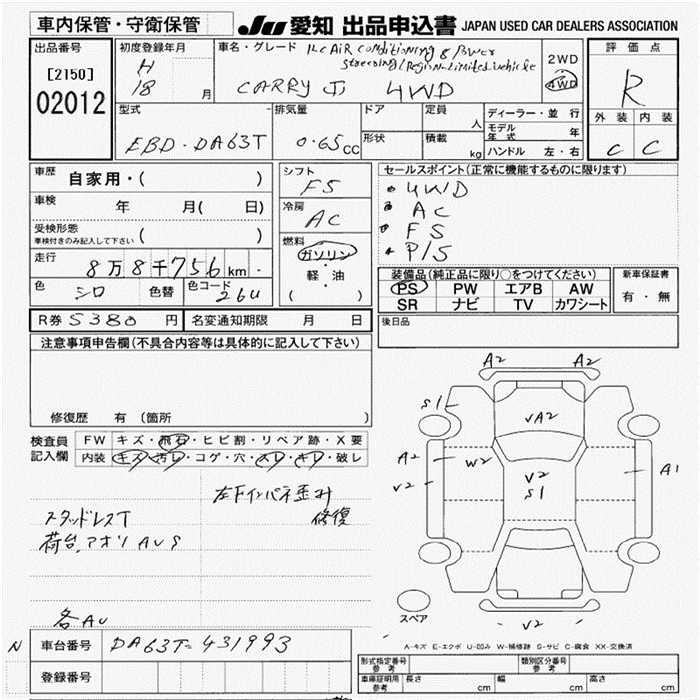 車内保管・守衛保管 JU 愛知 出品申込書 JAPAN USED CAR DEALERS ASSOCIATION
出品番号
[2150]
02012
初度登録年月
H
18 月
車名・グレード
AIR Conditioning & Power
steering/Region-limited vehicle
CARRY 4WD
2WD
・
4WD
評価点
R
外装 内装
C C
型式
EBD・DA63T
排気量
0.65 CC
ドア
形状
定員
人
積載
kg
ディーラー・並行
モデル年式 年
ハンドル 左・右
車歴
自家用・( )
車検 年 月( 日)
受検形態
車検付きのみ記入して下さい ( )
走行
8万8千756 km
色
シロ
色替
色コード
26U
シフト
F5
冷房
AC
燃料
ガソリン
・
軽・油
( )
セールスポイント(正常に機能するものに限ります)
4W/D
AC
F5
P/S
装備品(純正品に限り○をつけてください)
PS PW エアB AW
SR ナビ TV カワシート
新車保証書
有・無
後日品
R券 5380 円 名変通知期限 月 日
注意事項申告欄(不具合内容等は具体的に記入して下さい)
修復歴 有(箇所 )
検査員
記入欄
FW キズ・飛石・ヒビ割・リペア跡・X要
内装 キズ・汚レ・コゲ・穴・スレ・キレ・破レ
左F インパネ歪み
修復
スタッドレスT
荷台、アオリ AUS
各AU
N
車台番号 DA63T-431993
登録番号
A2 A2
S1
VA2
A2 W2
V2
V2
S1
A1
V2
スペア
A-キズ E-エクボ U-凹み W-補修跡 S-サビ C-腐食 XX-交換済
形式指定番号
参考
類別区分番号
参考
車庫証明用
参考
長さ cm 幅 cm 高さ cm